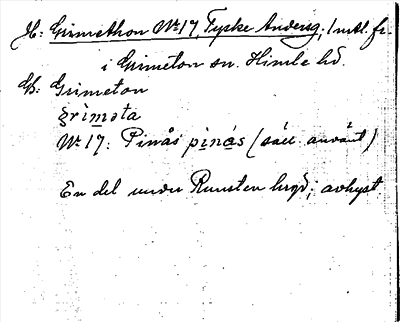 H: Grimethon Nr 17, Tyske Anders; 1 mtl. fr.
i Grimeton sn. Himle hd.
B: Grimeton
grìmәta
Nr 17: Pinås pìnás (säll. använt)
En del under Runsten lugd; avhyst